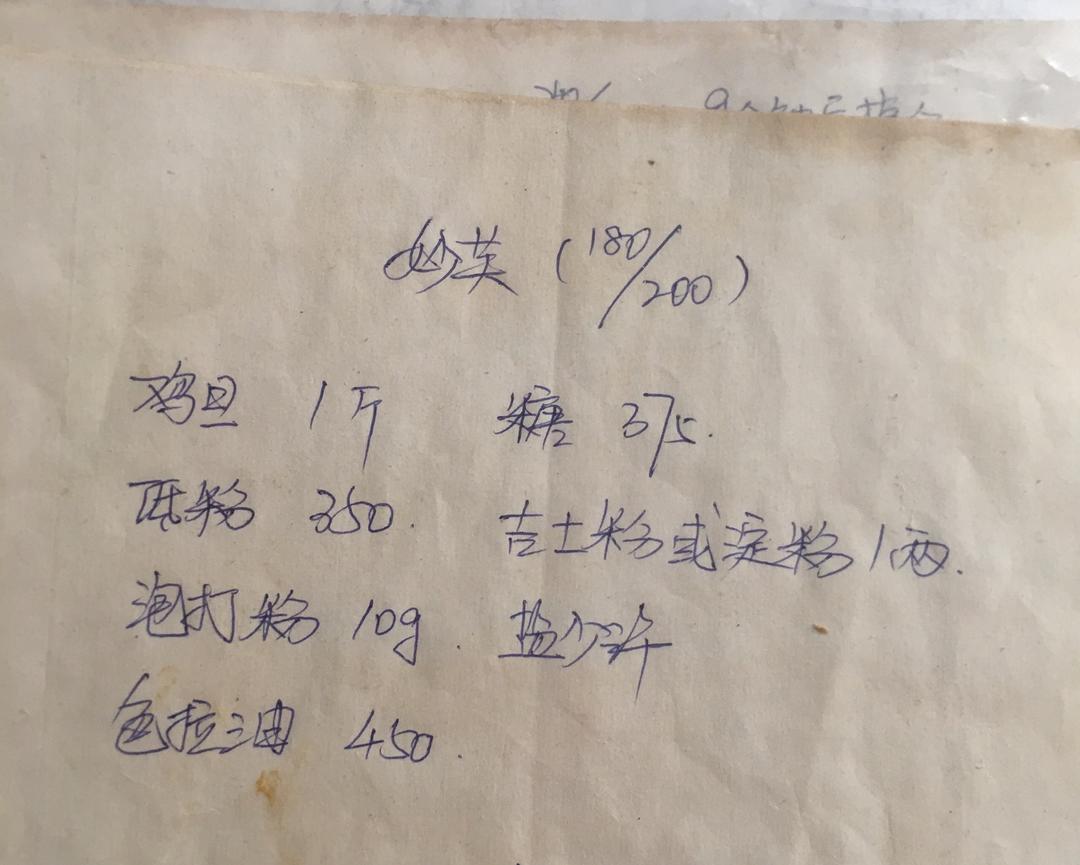 妙芙（180/200）
鸡旦 1斤 糖 375.
低粉 350. 吉士粉或淀粉 1两.
泡打粉 10g. 盐少许
色拉油 450.